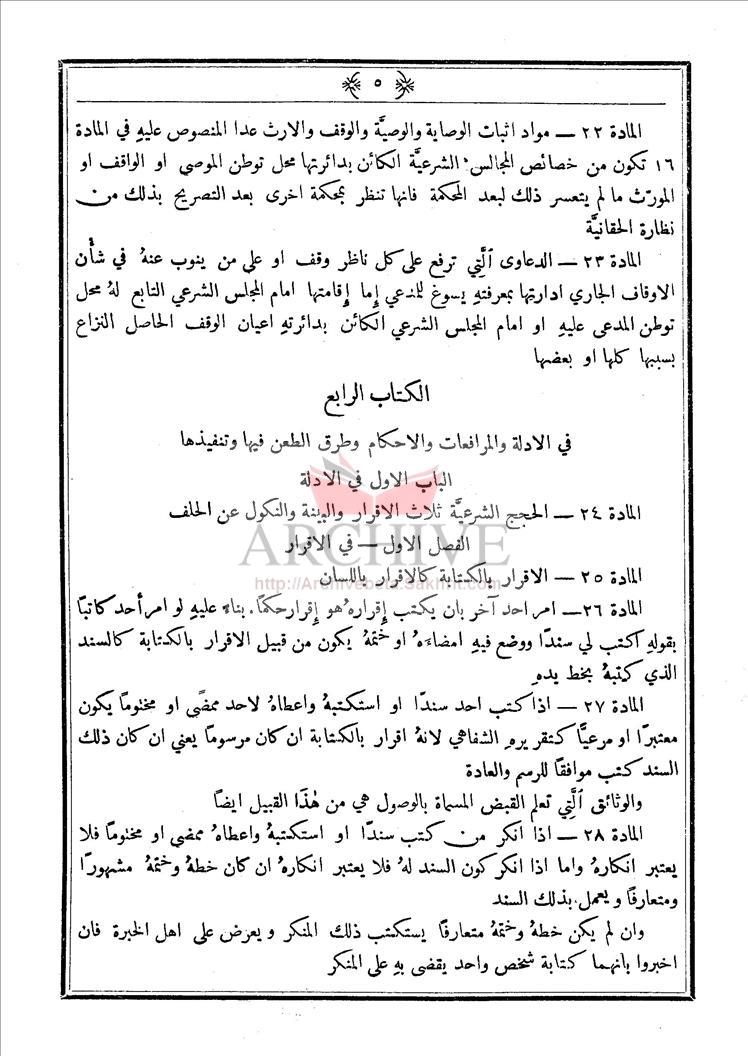 ٥
المادة ٢٢ — مواد اثبات الوصاية والوصيَّة والوقف والارث عدا المنصوص عليهِ في المادة
١٦ تكون من خصائص المجالس الشرعيَّة الكائن بدائرتها محل توطن الموصي او الواقف او
المورّث ما لم يتعسر ذلك لبعد المحكمة فانها تنظر بمحكمة اخرى بعد التصريح بذلك من
نظارة الحقانيَّة
المادة ٢٣ — الدعاوى ٱلَّتِي ترفع على كل ناظر وقف او على من ينوب عنهُ في شأن
الاوقاف الجاري ادارتها بمعرفتهِ يسوغ للمدعي إما إقامتها امام المجلس الشرعي التابع لهُ محل
توطن المدعى عليهِ او امام المجلس الشرعي الكائن بدائرتهِ اعيان الوقف الحاصل النزاع
بسببها كلها او بعضها
الكتاب الرابع
في الادلة والمرافعات والاحكام وطرق الطعن فيها وتنفيذها
الباب الاول في الادلة
المادة ٢٤ — الحجج الشرعيَّة ثلاث الاقرار والبينة والنكول عن الحلف
الفصل الاول — في الاقرار
ARCHIVE
المادة ٢٥ — الاقرار بالكتابة كالاقرار باللسان
http://Archivebeta.Sakhrit.com
المادة ٢٦— امر احد آخر بان يكتب إقرارهُ هو إقرار حكمًا. بناءً عليهِ لو امر أحد كاتبًا
بقولهِ اكتب لي سندًا ووضع فيهِ امضاءَهُ او ختمهُ يكون من قبيل الاقرار بالكتابة كالسند
الذي كتبهُ بخط يدهِ
المادة ٢٧ — اذا كتب احد سندًا او استكتبهُ واعطاهُ لاحد ممضًى او مختومًا يكون
معتبرًا او مرعيًّا كتقريرهِ الشفاهي لانهُ اقرار بالكتابة ان كان مرسومًا يعني ان كان ذلك
السند كتب موافقًا للرسم والعادة
والوثائق ٱلَّتِي تعلم القبض المسماة بالوصول هي من هٰذَا القبيل ايضًا
المادة ٢٨ — اذا انكر من كتب سندًا او استكتبهُ واعطاهُ ممضى او مختومًا فلا
يعتبر انكارهُ واما اذا انكر كون السند لهُ فلا يعتبر انكارهُ ان كان خطهُ وختمهُ مشهورًا
ومتعارفًا ويعمل بذلك السند
وان لم يكن خطهُ وختمهُ متعارفًا يستكتب ذلك المنكر ويعرض على اهل الخبرة فان
اخبروا بانهما كتابة شخص واحد يقضى بهِ على المنكر